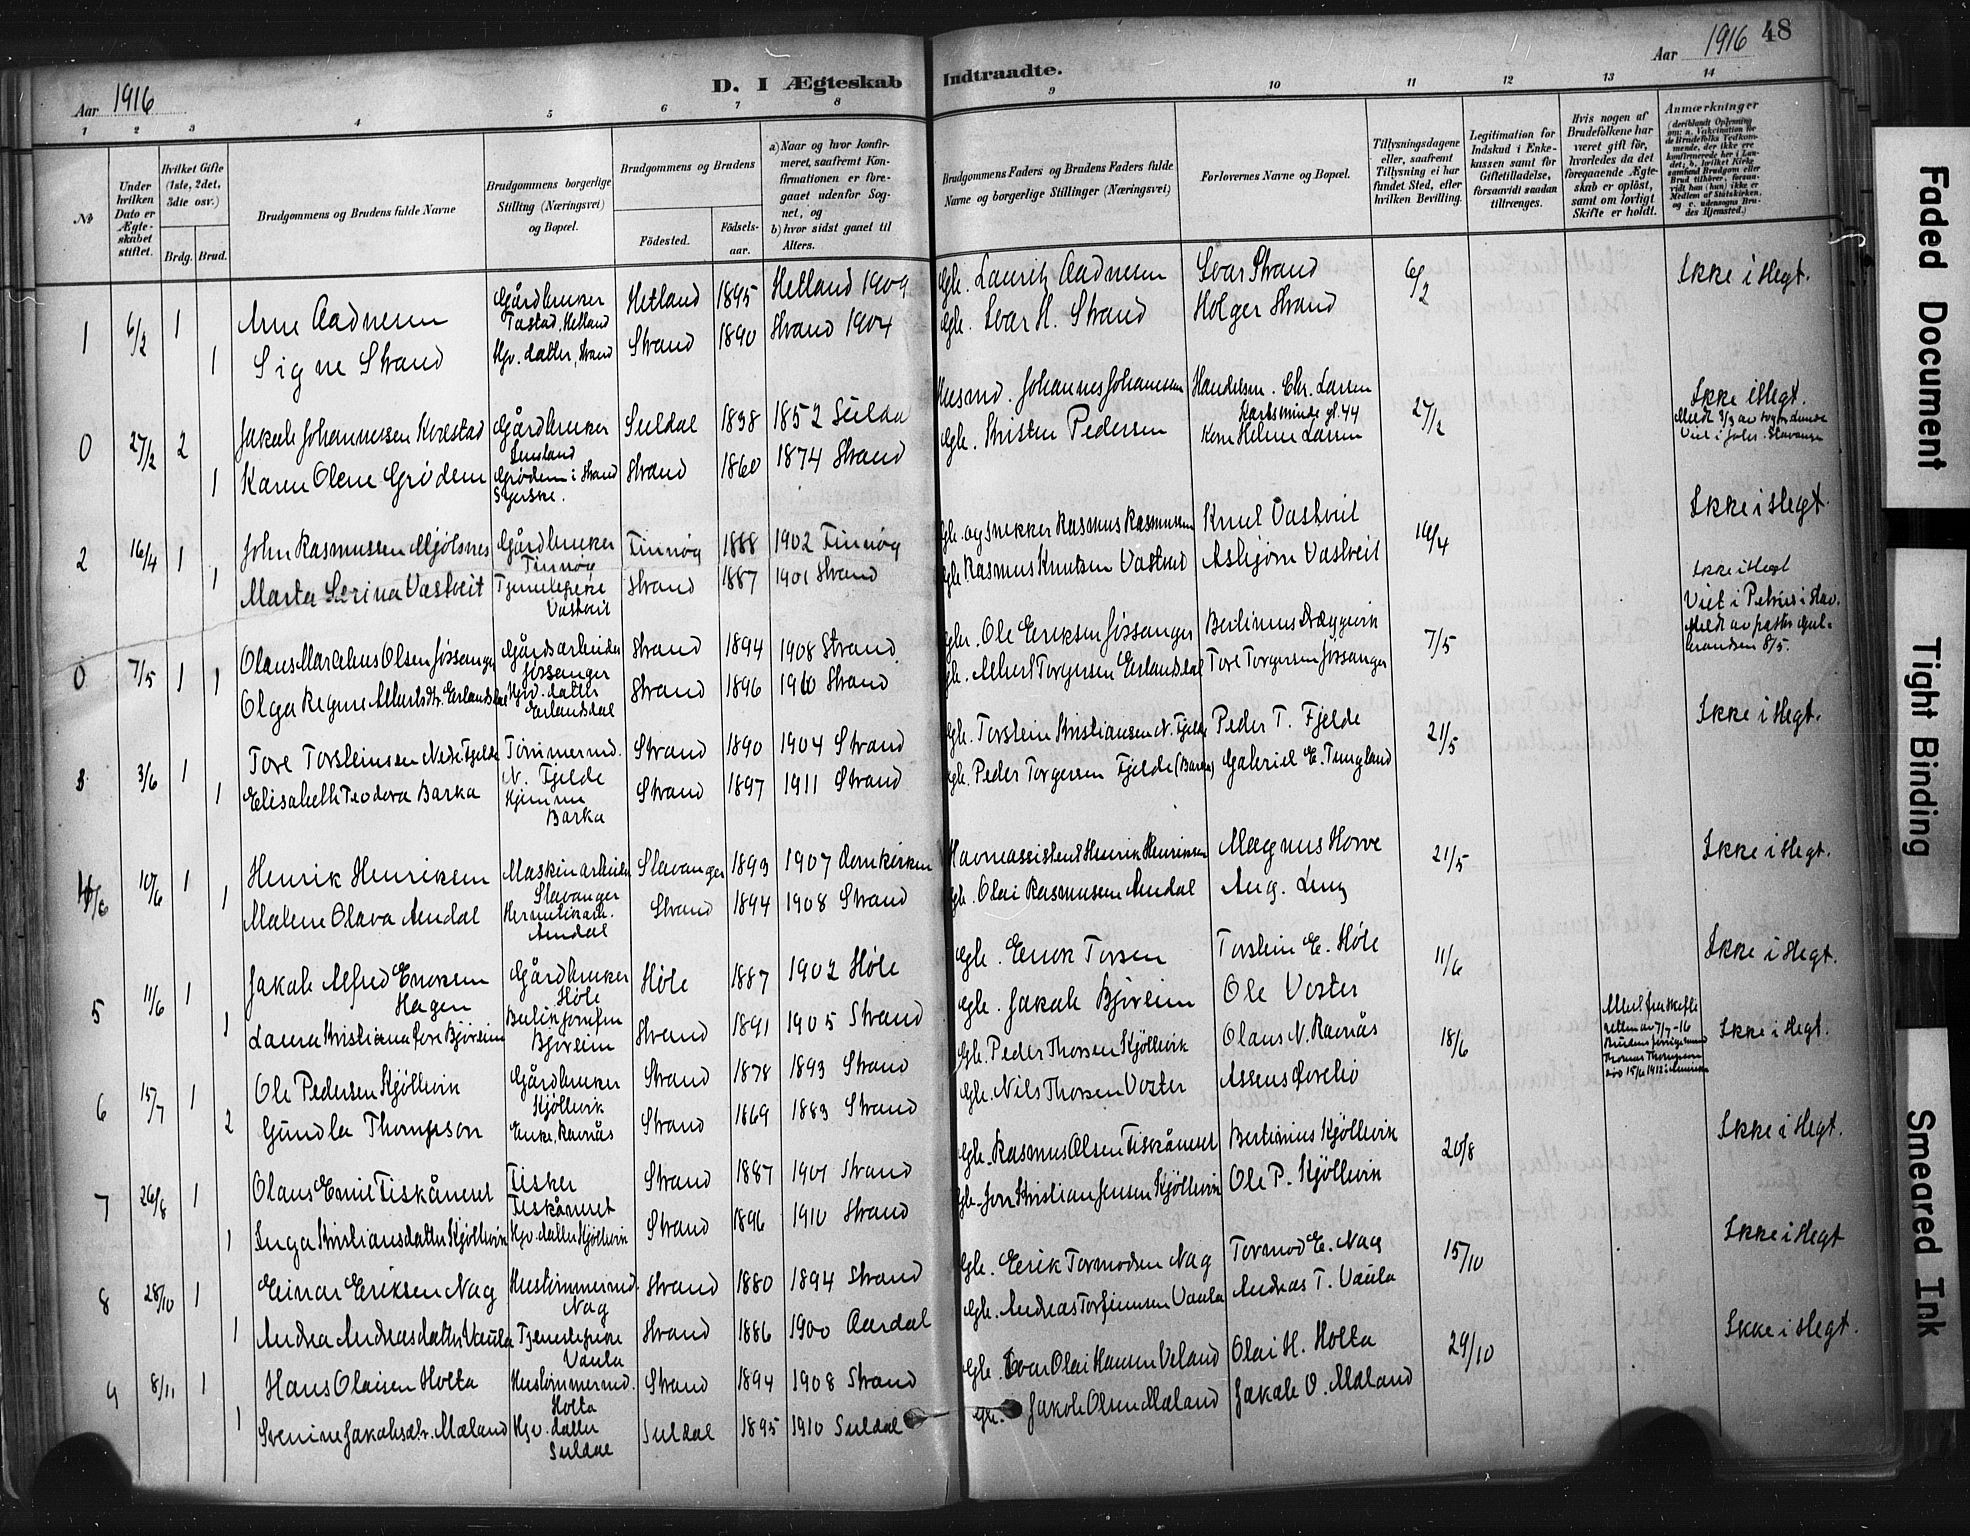 Aar 1916
D. I Ægteskab Indtraadte.
Aar 1916 48
1 2 3 4 5 6 7 8 9 10 11 12 13 14
No
Under hvilken Dato er Ægteskabet stiftet.
Hvilket Gifte (1ste, 2det, 3die osv.)
Brdg. Brud.
Brudgommens og Brudens fulde Navne
Brudgommens borgerlige Stilling (Næringsvei) og Bopæl.
Brudgommens og Brudens
Födested. Födselsaar.
a) Naar og hvor konfirmeret, saafremt Konfirmationen er foregaaet udenfor Sognet, og
b) hvor sidst gaaet til Alters.
Brudgommens Faders og Brudens Faders fulde Navne og borgerlige Stillinger (Næringsvei)
Forlovernes Navne og Bopæl.
Tillysningsdagene eller, saafremt Tillysning ei har fundet Sted, efter hvilken Bevilling.
Legitimation for Indskud i Enkekassen samt for Giftetilladelse, forsaavidt saadan tiltrænges.
Hvis nogen af Brudefolkene har været gift för, hvorledes da det foregaaende Ægteskab er oplöst, samt om lovligt Skifte er holdt.
Anmærkninger
1 6/2 1 Arne Aadnesen Gårdbruker Tastad, Hetland Hetland 1895 Hetland 1909 Gbr. Lauritz Aadnesen Ivar Strand 6/2 Ikke i slegt.
1 Signe Strand Gbr. datter, Strand Strand 1890 Strand 1904 Gbr. Ivar H. Strand Holger Strand
0 27/2 2 Jakob Johannessen Gårdbruker Suldal 1838 1852 Husmd. Johannes Johannessen Handelsm. Chr. Larsen 27/2 Ikke i slegt.
1 Karen Olene Grødem Grødem i Strand Strand 1860 1874 Strand Gbr. Kristen Pedersen Helene Larsen
2 16/4 1 John Rasmussen Mjølsnes Gårdbruker Finnøy Finnøy 1888 1902 Finnøy Gbr. og snekker Rasmus Rasmussen Knut Vastveit 16/4 Ikke i slegt
1 Marta Serina Vastveit Tjenestepike Vastveit Strand 1887 1901 Strand Gbr. Rasmus Knutsen Vastveit Asbjørn Vastveit
0 7/5 1 Olaus Martinus Olsen Jøssanger Gårdsarbeider Jøssanger Strand 1894 1908 Strand Gbr. Ole Eriksen Jøssanger Bertinius Dræggevik 7/5 Ikke i slegt
Viet i Petrus i Stav.
1 Olga Regine Albertsdtr. Erlandsdal Gbr. datter Erlandsdal Strand 1896 1910 Strand Gbr. Albert Torgersen Erlandsdal Tore Torgersen Jøssanger
3 3/6 1 Tore Torsteinsen Nedre Fjelde Tömmermd. N. Fjelde Strand 1890 1904 Strand Gbr. Torstein Kristiansen N. Fjelde Peder T. Fjelde 21/5 Ikke i slegt.
1 Elisabeth Teodora Barka Hjemme Barka Strand 1897 1911 Strand Gbr. Peder Torgersen Fjelde (Barka) Gabriel E. Tungland
10/6 1 Henrik Henriksen Maskinarbeider Stavanger Stavanger 1893 1907 Domkirken Havneassistent Henrik Henriksen Magnus Horve 21/5 Ikke i slegt.
1 Malene Olava Amdal Amdal Strand 1894 1908 Strand Gbr. Olai Rasmussen Amdal Aug. Lura
5 11/6 1 Jakob Alfred Enoksen Hagen Gårdbruker Høle Høle 1887 1902 Høle Gbr. Enok Torsen Torstein E. Høle 11/6 Ikke i slegt.
1 Laura Kristiana Björeim Björeim Strand 1891 1905 Strand Gbr. Jakob Björeim Ole Voster
6 15/7 1 Ole Pedersen Kjöllevik Gårdbruker Kjöllevik Strand 1878 1893 Strand Gbr. Peder Thorsen Kjöllevik Olaus N. Ravnås 18/6 Ikke i slegt.
2 Gundla Thompson Enke, Ravnås Strand 1869 1883 Strand Gbr. Nils Thorsen Voster
7 26/8 1 Olaus Emil Fiskåneset Fisker Fiskåneset Strand 1887 1901 Strand Gbr. Rasmus Olsen Fiskåneset Bertinius Kjöllevik 20/8 Ikke i slegt.
1 Inga Kristiansdatter Kjöllevik Gbr. datter Kjöllevik Strand 1896 1910 Strand Gbr. Jon Kristian Jensen Kjöllevik Ole P. Kjöllevik
8 28/10 1 Einar Eriksen Nag Hustömmermd. Nag Strand 1880 1894 Strand Gbr. Erik Tormodsen Nag Tormod E. Nag 15/10 Ikke i slegt
1 Andrea Andreasdatter Vaula Tjenestepike Vaula Strand 1886 1900 Aardal Gbr. Andreas Torfinnsen Vaula Andreas T. Vaula
9 8/11 1 Hans Olaisen Holta Hustömmermd. Holta Strand 1894 1908 Strand Gbr. Olai Hansen Veland Olai H. Holta 29/10 Ikke i slegt.
1 Severine Jakobsdtr. Mæland Gbr. datter Suldal Suldal 1895 1910 Suldal Gbr. Jakob Olsen Mæland Jakob O. Mæland
Faded Document
Tight Binding
Smeared Ink